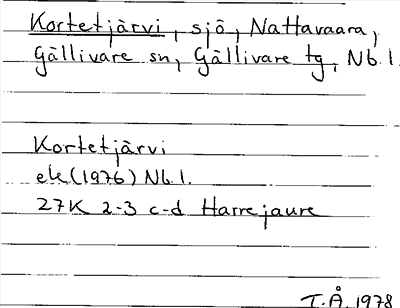 Kortetjärvi, sjö, Nattavaara,
Gällivare sn, Gällivare tg, Nb.l.
Kortetjärvi
ek (1976) Nb.l.
27K 2-3 c-d Harrejaure
T.Å. 1978